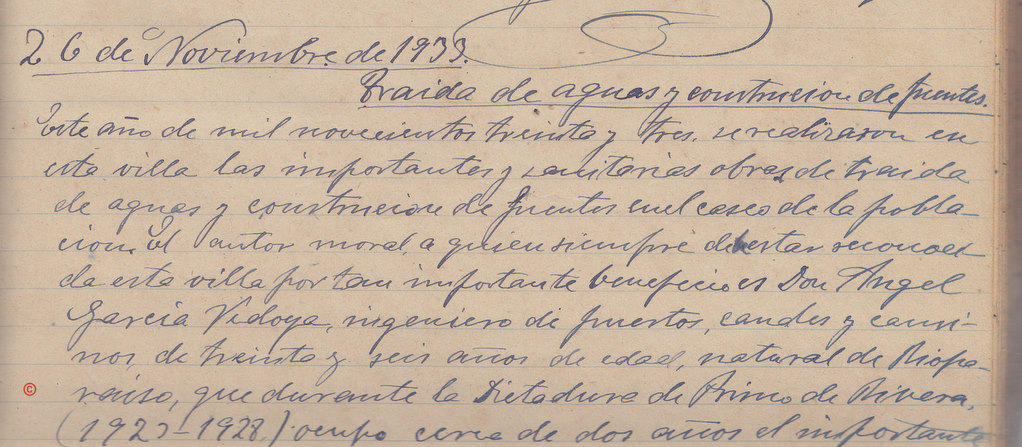 26 de Noviembre de 1933.
Traida de aguas y construcion de fuentes.
Este año de mil novecientos treinta y tres. se realizaron en
esta villa las importantes y sanitarias obras de traida
de aguas y construcion de fuentes en el casco de la pobla-
cion. El autor moral, a quien siempre debe estar reconoci-
da esta villa por tan importante beneficio es Don Angel
Garcia Vedoya, ingeniero de puertos, canales y cami-
nos, de treinta y seis años de edad, natural de Riopa-
raiso, que durante la Dictadura de Primo de Rivera,
(1923-1928,) ocupo cerca de dos años el importante
©